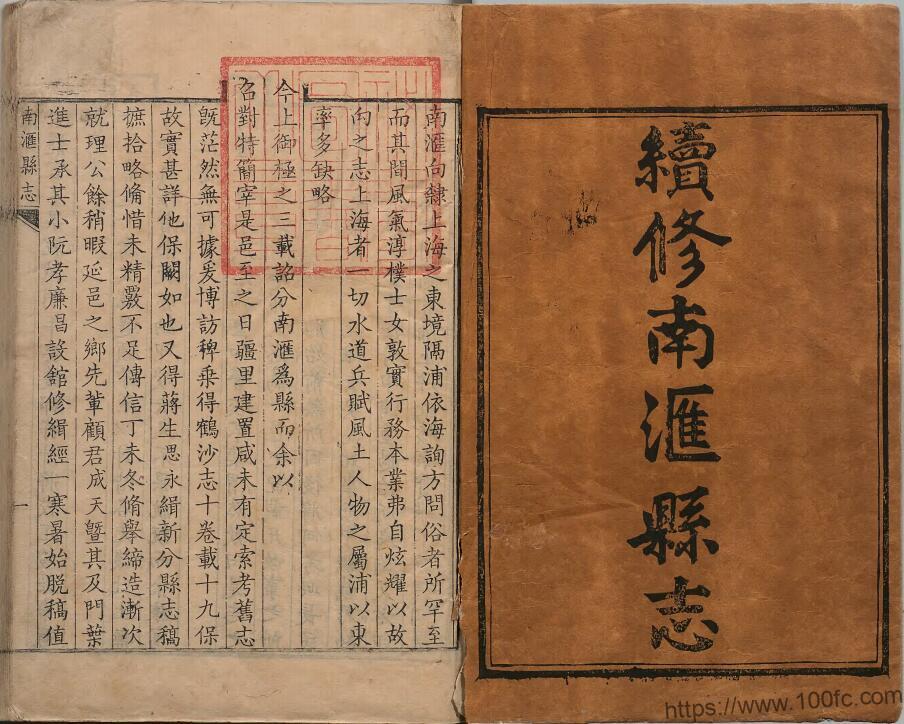 續修南滙縣志
南滙向隸上海之東境隔浦依海詢方問俗者所罕至
而其間風氣淳樸士女敦實行務本業弗自炫耀以故
向之志上海者一切水道兵賦風土人物之屬浦以東
率多缺略
今上御極之三載詔分南滙爲縣而余以
召對特簡宰是邑至之日疆里建置咸未有定索考舊志
旣茫然無可據爰博訪稗乗得鶴沙志十卷載十九保
故實甚詳他保闕如也又得蔣生思永緝新分縣志稿
摭拾略偹惜未精覈不足傳信丁未冬偹舉締造漸次
就理公餘稍暇延邑之鄉先軰顧君成天曁其及門葉
進士承其小阮孝廉昌設舘修緝經一寒暑始脱稿值
南滙縣志
一
https://www.100fc.com